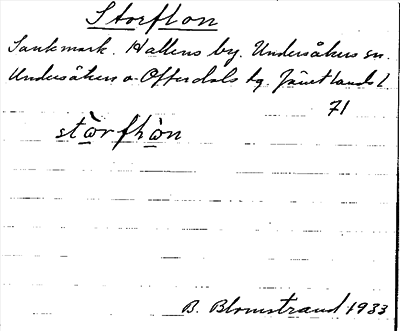 Storflon
Sankmark. Hallens by. Undersåkers sn.
Undersåkers o. Offerdals tg. Jämtlands l.
71
stòrfḷòn
B. Blomstrand 1933